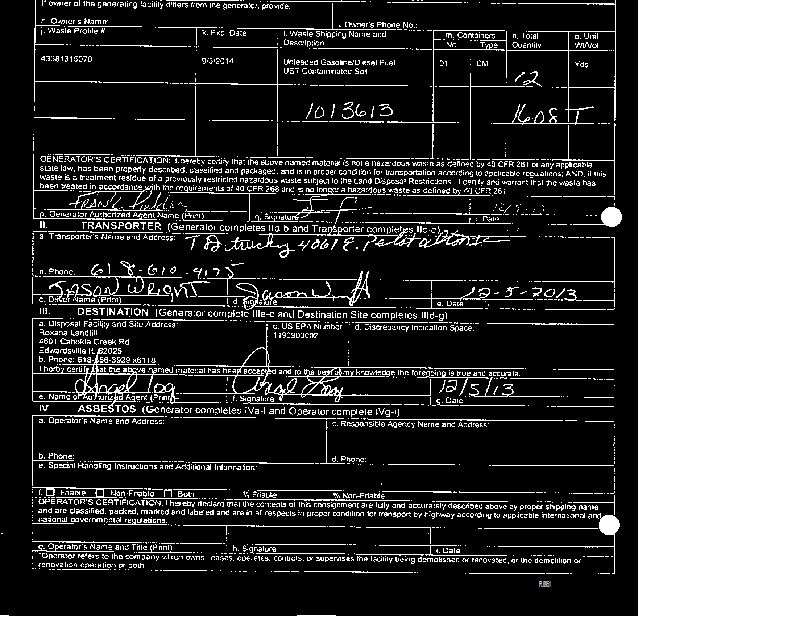 If owner of the generating facility differs from the generator, provide:
r. Owner's Name: s. Owner's Phone No.:
j. Waste Profile # k. Exp. Date l. Waste Shipping Name and Description m. Containers No Type n. Total Quantity o. Unit Wt/Vol
9/5/2014 Unleaded Gasoline/Diesel Fuel 01 CM 12 Yds
UST Contaminated Soil
1013613 1608 T
GENERATOR'S CERTIFICATION: I hereby certify that the above named material is not a hazardous waste as defined by 40 CFR 261 or any applicable
state law, has been properly described, classified and packaged, and is in proper condition for transportation according to applicable regulations; AND, if this
waste is a treatment residue of a previously restricted hazardous waste subject to the Land Disposal Restrictions. I certify and warrant that the waste has
been treated in accordance with the requirements of 40 CFR 268 and is no longer a hazardous waste as defined by 40 CFR 261.
FRANK
p. Generator Authorized Agent Name (Print) q. Signature r. Date
II. TRANSPORTER (Generator completes IIa-b and Transporter completes IIc-e)
a. Transporter's Name and Address: 4061 E.
b. Phone: 618-610-4175
JASON WRIGHT Jason 12-5-2013
c. Driver Name (Print) d. Signature e. Date
III. DESTINATION (Generator complete IIIa-c and Destination Site completes IIId-g)
a. Disposal Facility and Site Address: c. US EPA Number d. Discrepancy Indication Space:
Roxana Landfill
4601 Cahokia Creek Rd
Edwardsville IL 62025
b. Phone: 618-656-3929 x6118
I hereby certify that the above named material has been accepted and to the best of my knowledge the foregoing is true and accurate.
12/5/13
e. Name of Authorized Agent (Print) f. Signature g. Date
IV ASBESTOS (Generator completes IVa-f and Operator complete IVg-i)
a. Operator's Name and Address: c. Responsible Agency Name and Address:
b. Phone: d. Phone:
e. Special Handling Instructions and Additional Information:
f. Friable Non-Friable Both % Friable % Non-Friable
OPERATOR'S CERTIFICATION: I hereby declare that the contents of this consignment are fully and accurately described above by proper shipping name
and are classified, packed, marked and labeled and are in all respects in proper condition for transport by highway according to applicable international and
national governmental regulations.
g. Operator's Name and Title (Print) h. Signature i. Date
*Operator refers to the company which owns, leases, operates, controls, or supervises the facility being demolished or renovated, or the demolition or
renovation operation or both